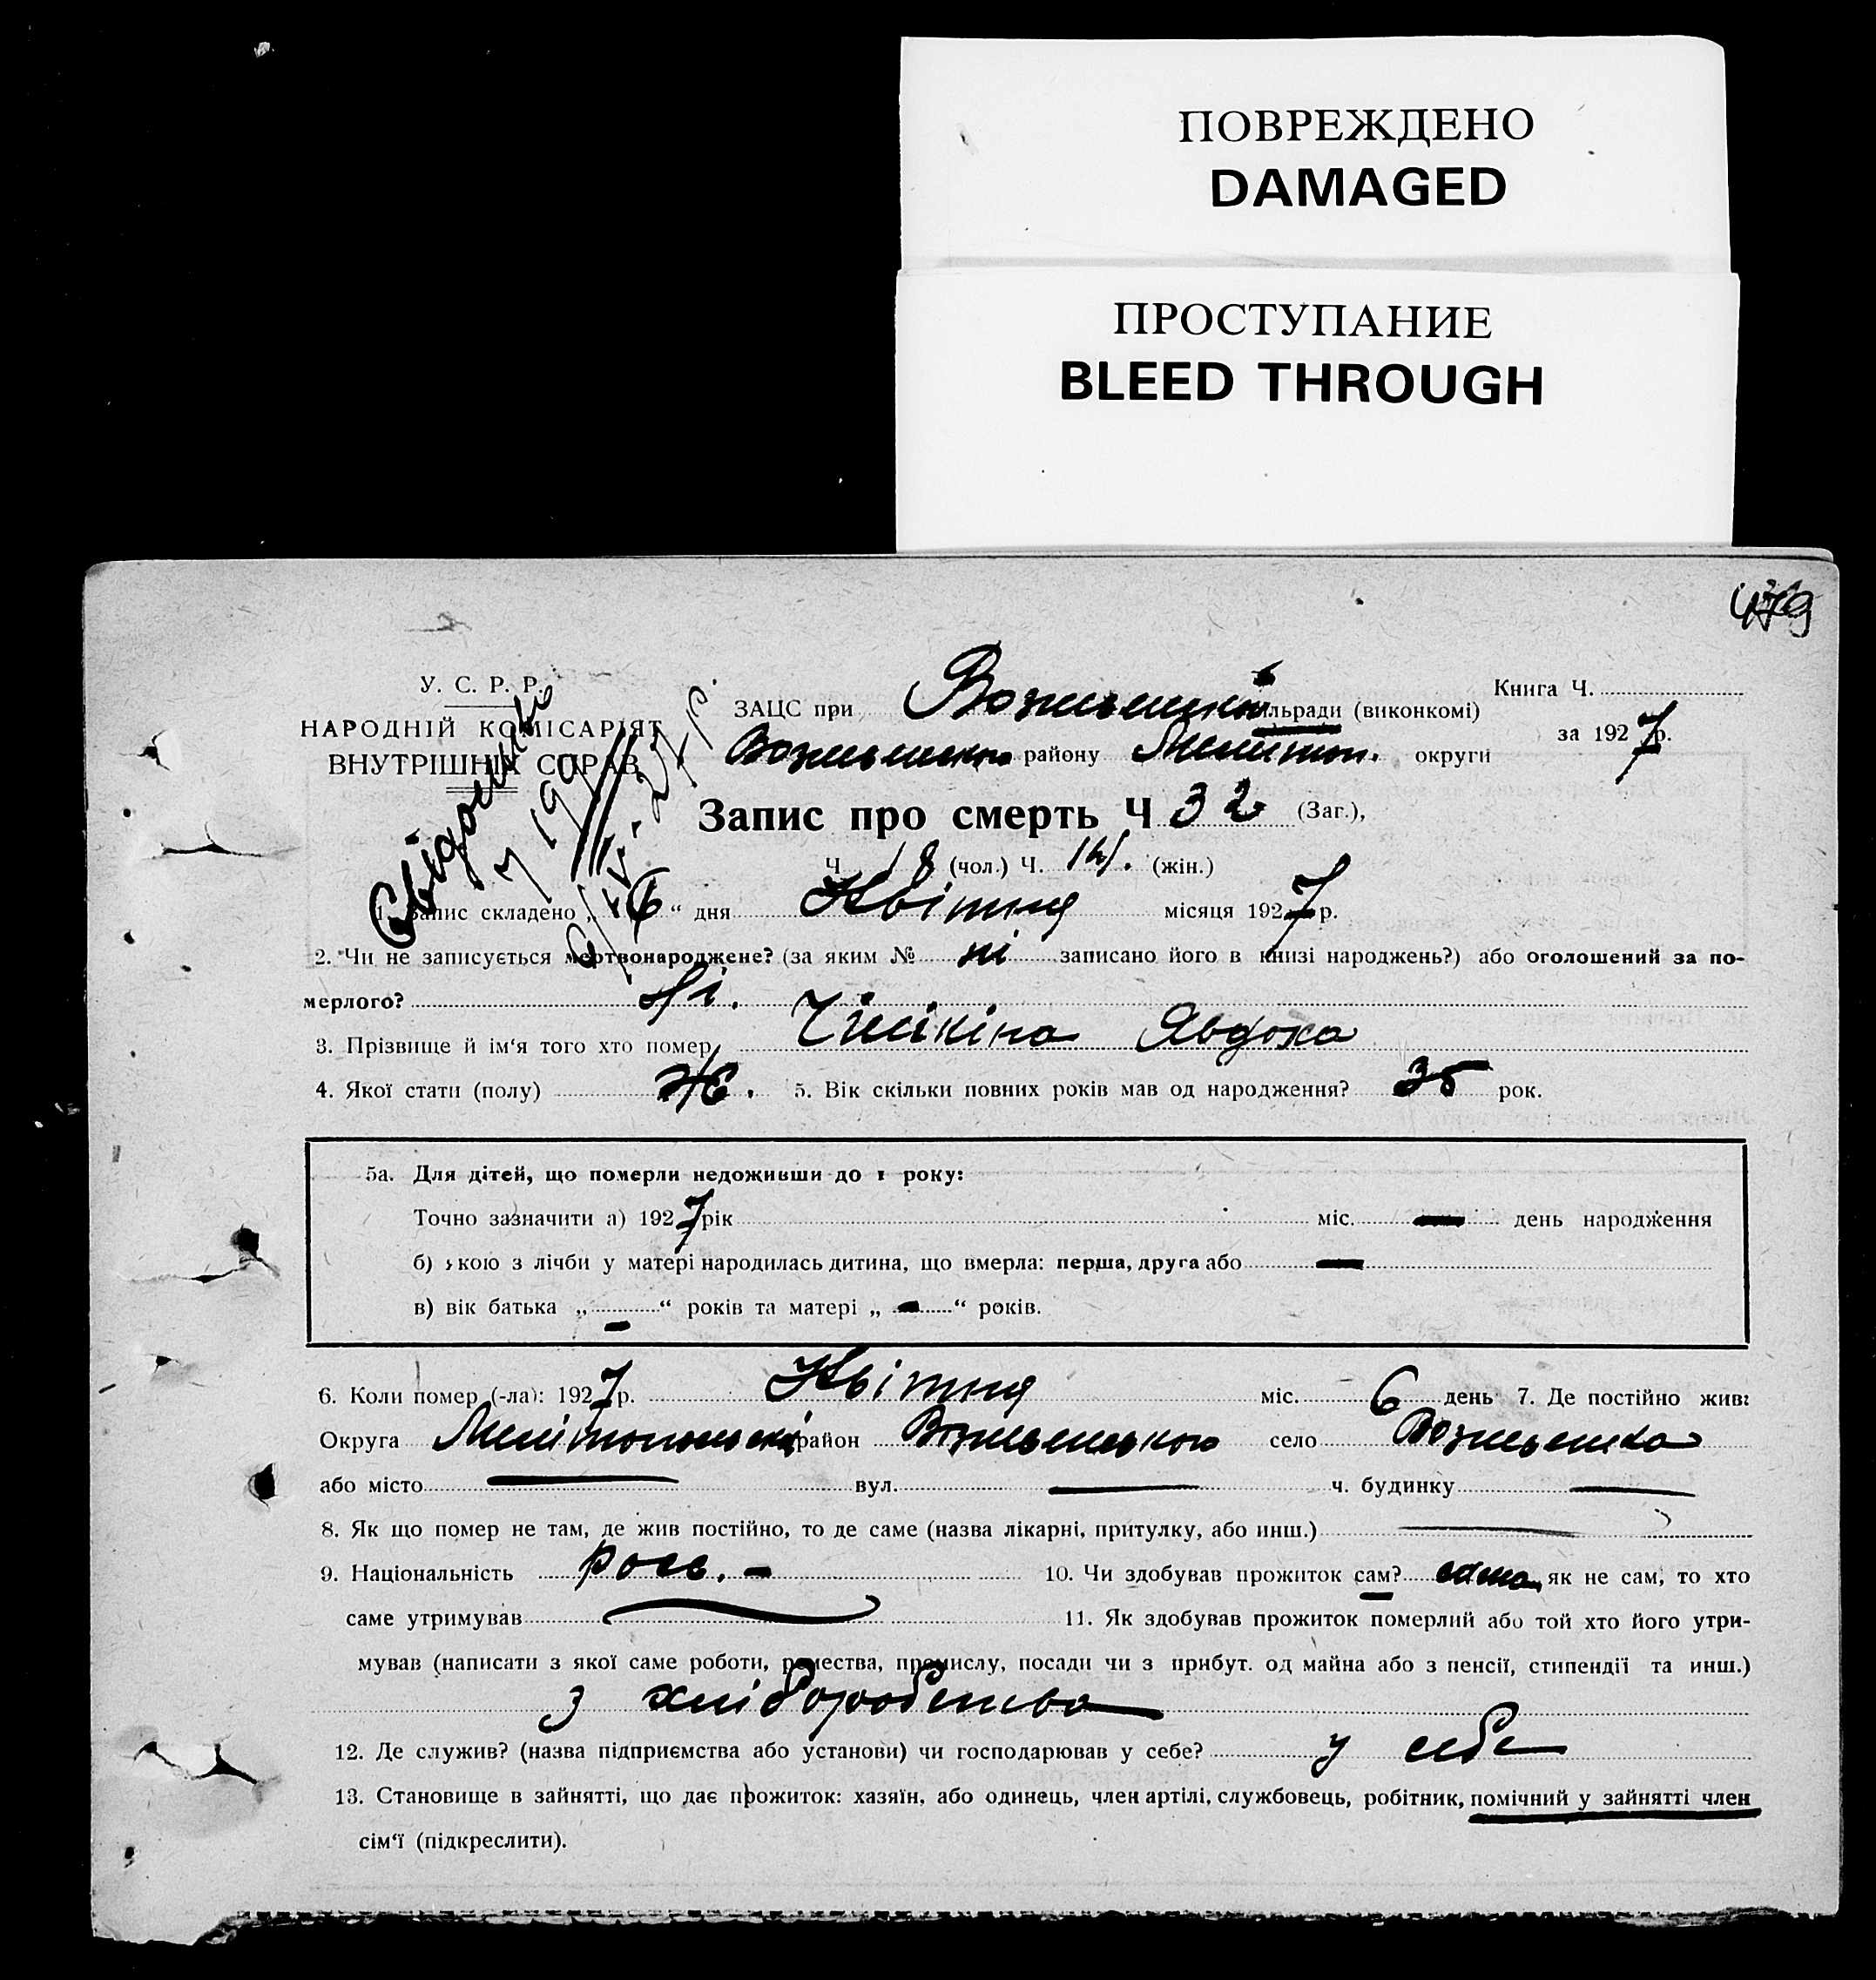 ПОВРЕЖДЕНО
DAMAGED
ПРОСТУПАНИЕ
BLEED THROUGH
479
У. С. Р. Р.
НАРОДНІЙ КОМІСАРІЯТ
ВНУТРІШНІХ СПРАВ
ЗАЦС при сільради (виконкомі)
району Меліт. округи
Книга Ч.
за 1927 р.
Запис про смерть Ч 32 (Заг.),
Ч. 18 (чол.) Ч. 14. (жін.)
1. Запис складено „ 6 “ дня Квітня місяця 1927 р.
2. Чи не записується мертвонароджене? (за яким № ні записано його в книзі народжень?) або оголошений за по-
мерлого? Ні.
3. Прізвище й ім‘я того хто помер Явдоха
4. Якої стати (полу) Ж. 5. Вік скільки повних років мав од народження? 35 рок.
5а. Для дітей, що померли недоживши до 1 року:
Точно зазначити а) 1927 рік міс. — день народження
б) кою з лічби у матері народилась дитина, що вмерла: перша, друга або —
в) вік батька „ — “ років та матері „ — “ років.
6. Коли помер (-ла): 1927 р. Квітня міс. 6 день 7. Де постійно жив:
Округа Мелітопольська район село
або місто — вул. — ч. будинку —
8. Як що помер не там, де жив постійно, то де саме (назва лікарні, притулку, або инш.) —
9. Національність рось. — 10. Чи здобував прожиток сам? сама, як не сам, то хто
саме утримував — 11. Як здобував прожиток померлий або той хто його утри-
мував (написати з якої саме роботи, ремества, промислу, посади чи з прибут. од майна або з пенсії, стипендії та инш.)
з хліборобства
12. Де служив? (назва підприємства або установи) чи господарював у себе? у себе
13. Становище в зайнятті, що дає прожиток: хазяїн, або одинець, член артілі, службовець, робітник, помічний у зайнятті член
сім‘ї (підкреслити).